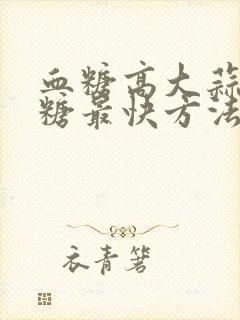 血糖高大蒜
糖最快方法
衣青箬